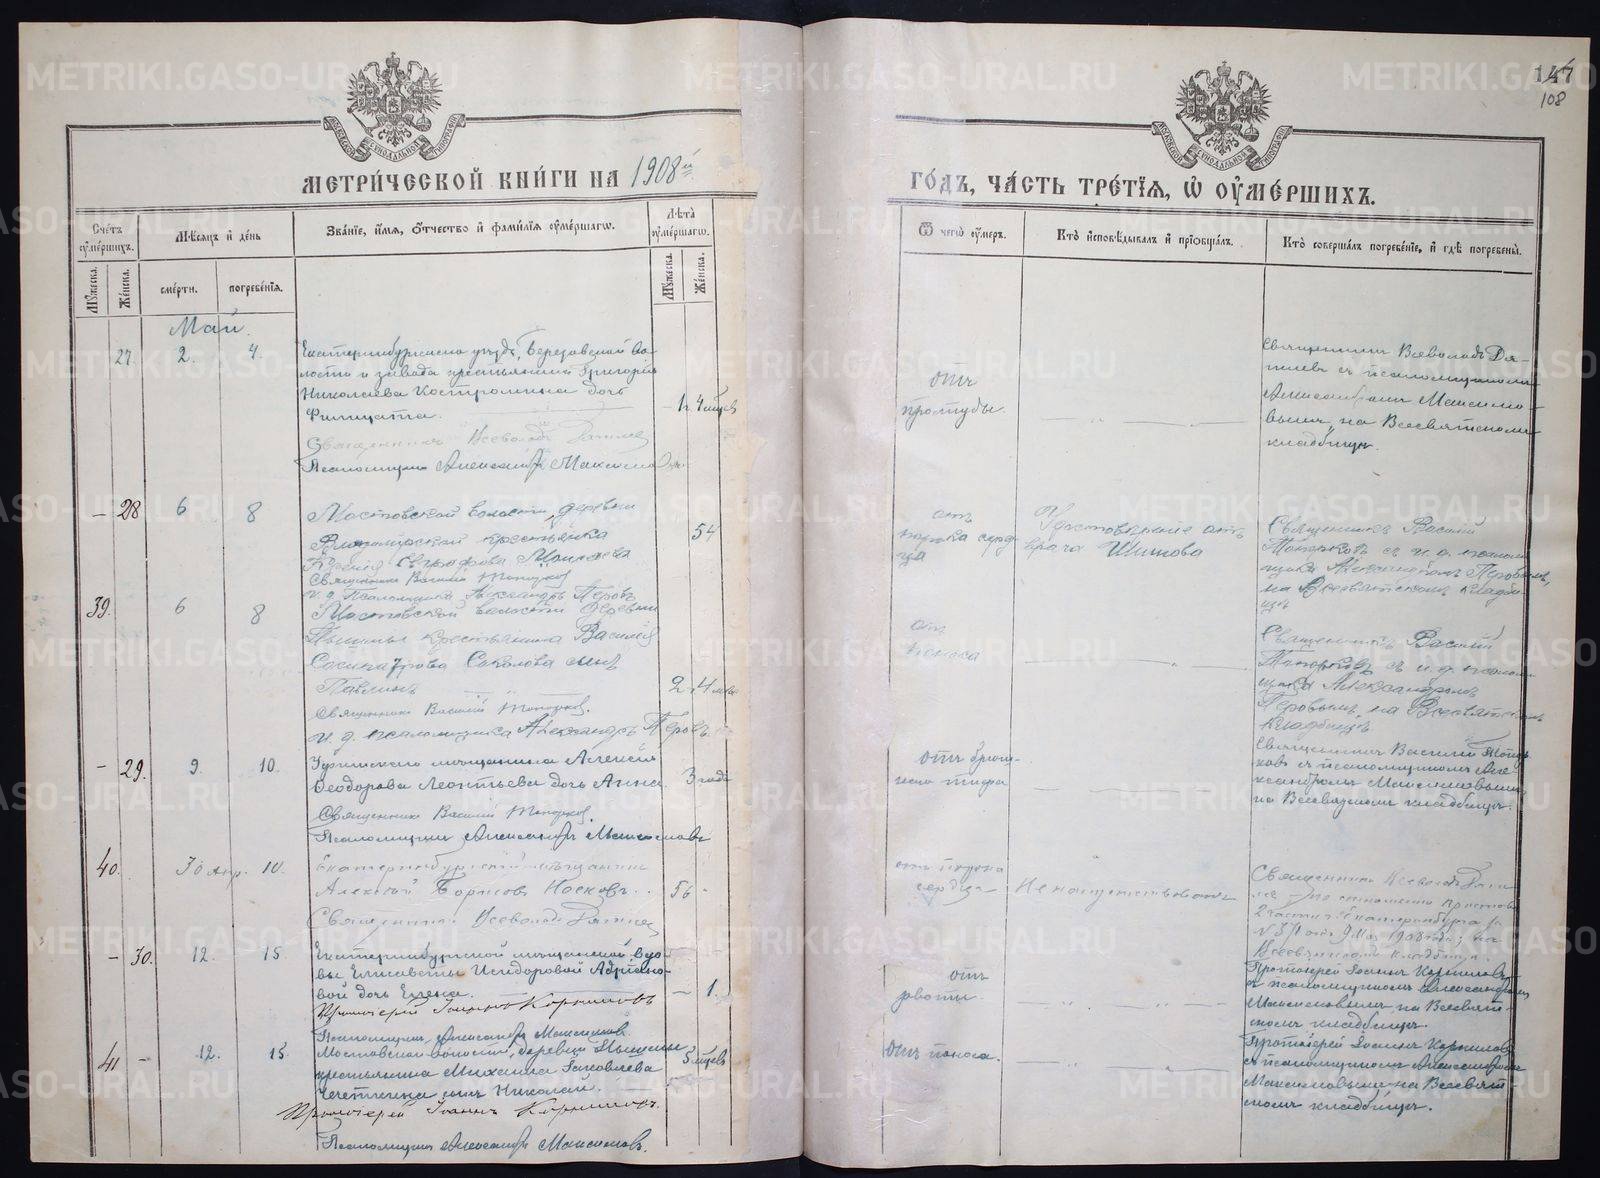 147
108
МОСКОВСКОЙ СѴНОДАЛЬНОЙ ТИПОГРАФІИ
МОСКОВСКОЙ СѴНОДАЛЬНОЙ ТИПОГРАФІИ
МЕТРИ́ЧЕСКОЙ КНИ́ГИ НА 1908й
ГО́ДЪ, ЧА́СТЬ ТРЕ́ТІЯ, Ѽ ОУМЕ́РШИХЪ.
Счетъ оумершихъ.
Мѣсяцъ и день
Званіе, имя, отчество и фамилія оумершагѡ.
Лѣта оумершагѡ.
Мужеска. Женска.
смерти. погребенія.
Мужеска. Женска.
Ѿ чегѡ оумеръ.
Кто исповѣдывалъ и пріобщалъ.
Кто совершалъ погребеніе, и гдѣ погребены.
Май.
27. 2. 4.
Екатеринбургскаго уѣзда, Березовской во-
лости и завода крестьянина Григорія
Николаева Костромина дочь
1 г. 4 мѣсяц
Священникъ Всеволодъ
Псаломщикъ Александръ Максимовъ
отъ
простуды.
Священникъ Всеволодъ
съ псаломщикомъ
Александромъ Максимо-
вымъ, на Всесвятскомъ
кладбищѣ.
– 28 6 8
Мостовской волости, деревни
крестьянка
54
Священникъ Василій Топорковъ
и. д. псаломщика Александръ Перовъ
отъ
порока серд-
ца
Удостовѣреніе отъ
врача Шитова
Священникъ Василій
Топорковъ съ и. д. псалом-
щика Александромъ Перовымъ,
на Всесвятскомъ кладби-
щѣ
39. 6 8
Мостовской волости деревни
Пышмы крестьянина Василія
Соколова сынъ
Павлинъ
2 г. 4 мѣс
Священникъ Василій Топорковъ.
и. д. псаломщика Александръ Перовъ.
отъ
поноса
Священникъ Василій
Топорковъ съ и. д. псалом-
щика Александромъ
Перовымъ, на Всесвятском
кладбищѣ
– 29. 9. 10.
мѣщанина Алексія
Ѳеодорова Леонтьева дочь Анна.
3 года
Священникъ Василій Топорковъ.
Псаломщикъ Александръ Максимовъ
отъ брюш-
наго тифа
Священникъ Василій Топор-
ковъ съ псаломщикомъ Але-
ксандромъ Максимовымъ
на Всесвятскомъ кладбищѣ.
40. 30 апр. 10.
Екатеринбургскій мѣщанинъ
Алексѣй Борисов Носковъ.
56 -
Священникъ Всеволодъ
отъ порока
сердца
Не напутствованъ
Священникъ Всеволодъ
по отношенію пристава
2 части г. Екатеринбурга
отъ 9 Мая 1908 года, на
Всесвятскомъ кладбищѣ.
– 30. 12. 15
Екатеринбургской мѣщанской вдо-
вы Елисаветы Исидоровой Адріано-
вой дочь Елена.
– 1.
Протоіерей Іоаннъ Корниловъ
Псаломщикъ Александръ Максимовъ.
отъ
рвоты.
Протоіерей Іоаннъ Корниловъ
съ псаломщикомъ Александромъ
Максимовымъ, на Всесвят-
скомъ кладбищѣ.
41 – 12. 15.
Мостовской волости, деревни Пышмы
крестьянина Михаила Яковлева
сынъ Николай.
5 мѣсяцев
Протоіерей Іоаннъ Корниловъ.
Псаломщикъ Александръ Максимовъ.
Отъ поноса.
Протоіерей Іоаннъ Корнилов
съ псаломщикомъ Александром
Максимовымъ на Всесвят
скомъ кладбищѣ.